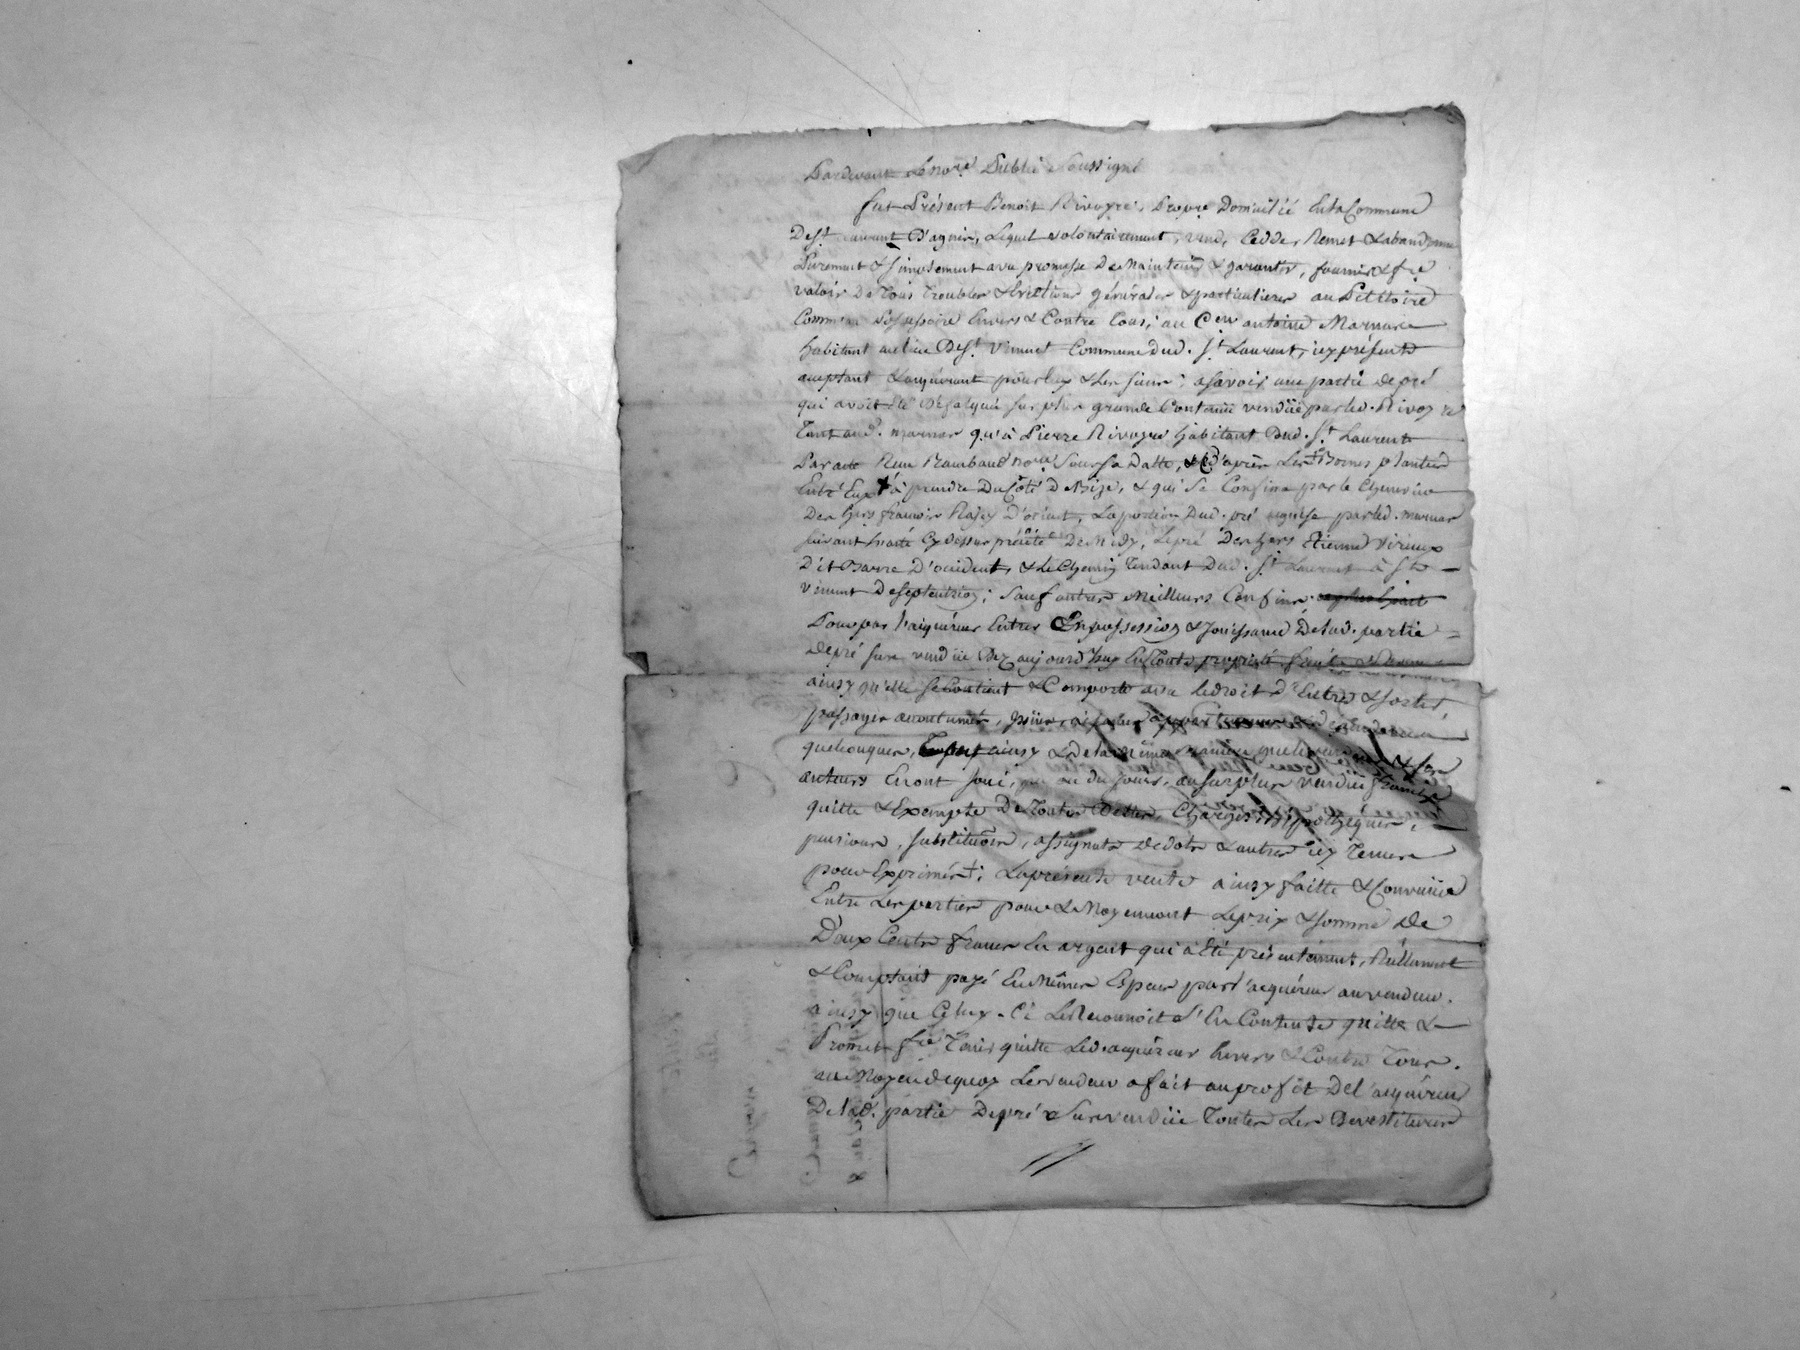 Pardevant Le no.re Public Soussigné
fut Présent Benoit Rivoyre, Propre Domicilié En la Commune
De S.t Laurent D'agnin, Lequel volontairement, vend, Cedde, Remet & abandonne
Purement & Simplement avec promesse De Maintenir & garantir, fournir & f.re
valoir De Tous Troubles & Evictions générales & particulieres au Petitoire
Comme au Possessoire Envers & Contre Tous, au C.en antoine Marnas
habitant au lieu De S.t Vincent Commune dud. S.t Laurent, icy présent
aceptant & aquérant pour luy & Les siens; asavoir une partie de pré
qui avoit été Défalquée sur plus grande Contenüe vendüe par led. Rivoyre
Tant aud. marnas qu'à Pierre Rivoyre habitant Dud. S.t Laurent
Par acte Reçu Rambaud no.re Sous Sa Datte, & D'après Les Bornes plantées
Entr'Eux à prendre Du Côté De Bize, & qui Se Confine par le Chemin
Des hers françois D'orient, La portion Dud. pré aquise par led. marnas
suivant L'acte Cy dessus précité De Midy, Le pré Des hers Etienne
Dit Barre D'occident, & Le Chemin Tendant Dud. S.t Laurent à S.t
Vincent De Septentrion; Sauf autres Meilleurs Confins
Pour par L'aquéreur Entrer En possession & Jouissance De lad. partie
De pré sus vendüe Dez aujourd'huy En Toute propriété
ainsy qu'elle Se Contient & Comporte avec Le droit D'Entrées & Sorties,
passages accoutumés, appartenances & dépendances
quelconques, Tout ainsy & De la même maniere que le vendeur & ses
auteurs En ont Joui, ou du Jouir, au surplus vendüe franche
quitte & Exempte De Toutes Dettes, Charges, hipotheques,
pensions, substitutions, assignats De dots & autres icy Tenus
pour Exprimés; La présente vente ainsy faitte & Convenüe
Entre Les parties pour & Moyennant Le prix & somme De
Deux Cents francs En argent qui à Eté présentement, Réellement
& Comptant payé En Mêmes Especes par L'aquéreur au vendeur.
ainsy que Celuy-Ci Le Reconnoit S'En Contente quitte &
Promet f.re Tenir quitte Led. aquéreur Envers & Contre Tous.
au Moyen de quoy Le vendeur a fait au profit De L'aquéreur
De lad. partie De pré Sus vendüe Toutes Les Devestitures